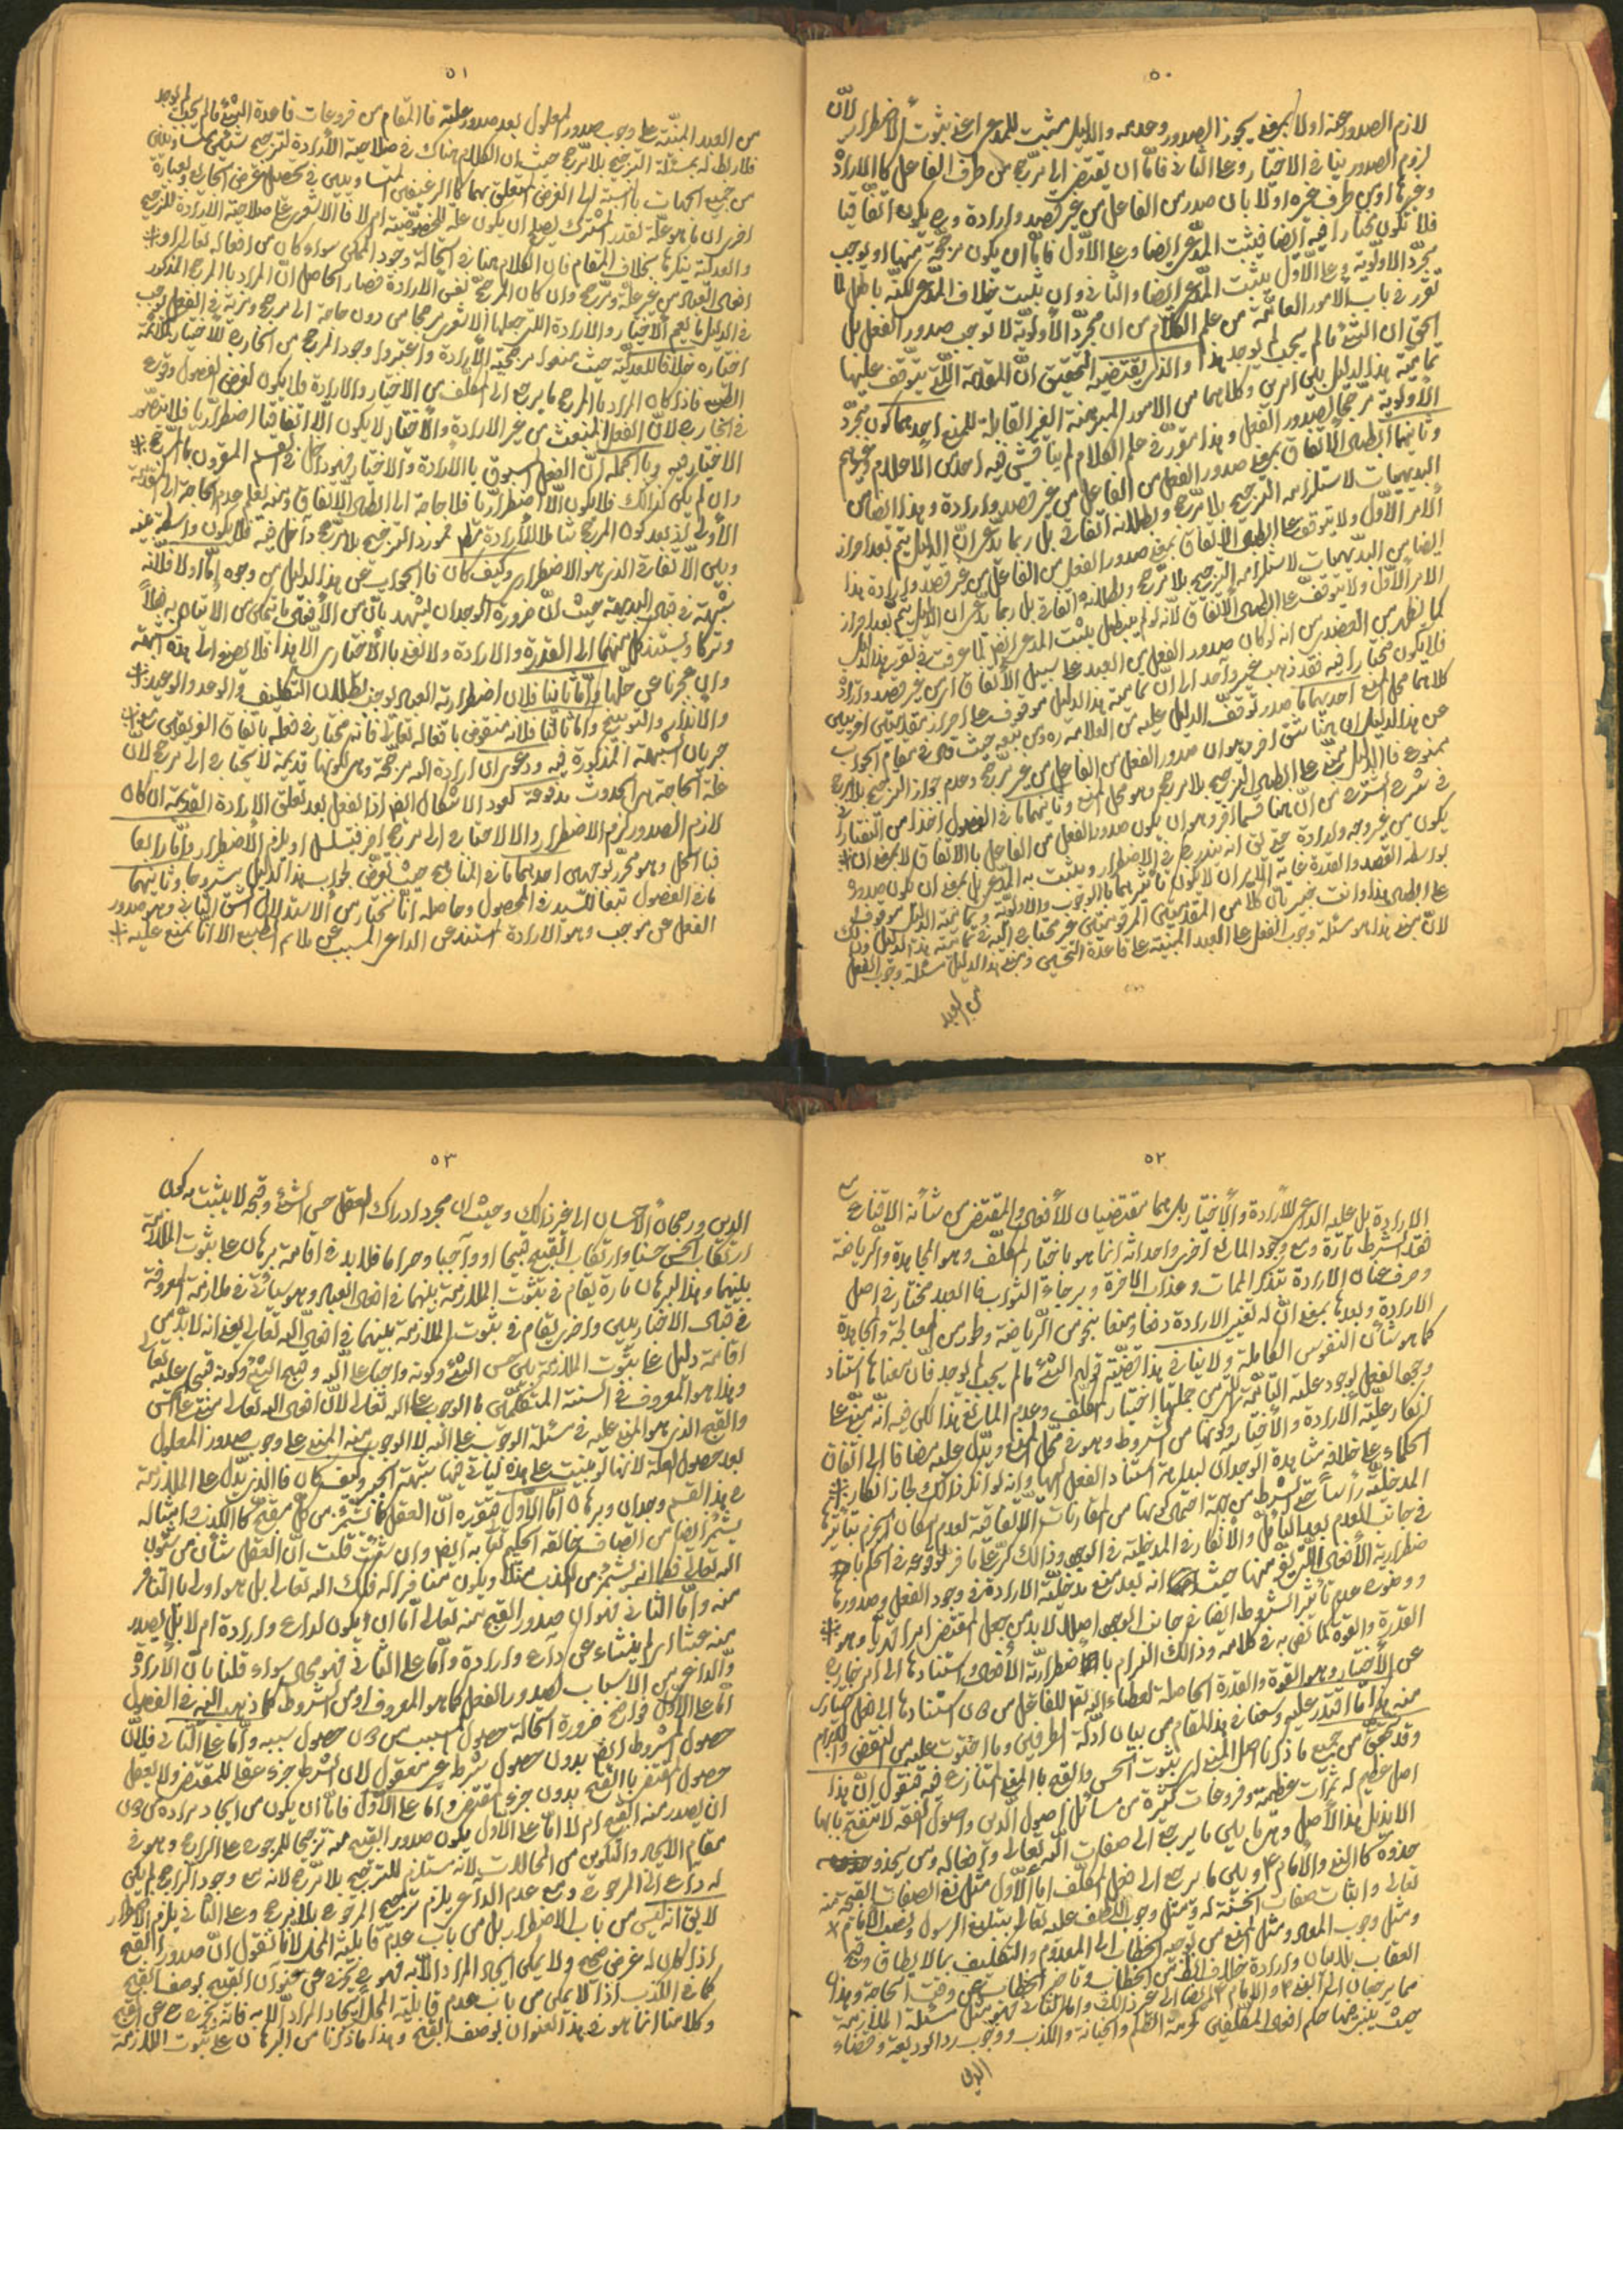 ٥٠
لازم الصدور عنه اولا بمعنى يجوز الصدور وعدمه والاول مثبت للمدعى اعنى ثبوت الاضطرار لانّ
لزوم الصدور ينافى الاختيار وعلى الثانى فامّا ان يفتقر الى مرجّح من طرف الفاعل كالارادة
وغيرها او من طرف غيره اولا بان صدر من الفاعل من غير قصد وارادة و يكون اتفاقيا
فلا تكون مختارا فيه ايضا فيثبت المدّعى ايضا وعلى الاوّل فامّا ان يكون مرجّحه منتهيا او يوجب
مجرّد الاولويّة وعلى الاوّل يثبت المدّعى ايضا والثانى وان يثبت خلاف المدّعى لكنّه باطل لما
تقرر فى باب الامور العامّة من علم الكلام من ان مجرّد الاولويّة لا يوجب صدور الفعل بل
الحق ان الشئ ما لم يجب لم يوجد هذا والذى يقتضيه التحقيق انّ المقدمة اللّتى يتوقف عليها
تمامية هذا الدليل بين امرين وكلاهما من الامور المبرهنة الغير القابلة للمنع احدهما كون مجرّد
الاولوية مرجحا لصدور الفعل وهذا مقرّر فى علم الكلام لم يناقش فيه احد من الاعلام وغيرهم
وثانيهما ابطال الاتفاق بمعنى صدور الفعل من الفاعل من غير قصد وارادة وهذا ايضا من
البديهيات لاستلزامه الترجيح بلا مرجّح وبطلانه اتفاقى بل ربما يدّعى انّ الدليل يتم بعد احراز
الامر الاوّل ولا يتوقف على ابطال الاتفاق بمعنى صدور الفعل من الفاعل من غير قصد وارادة هذا
ايضا من البديهيات لاستلزامه الترجيح بلا مرجّح وبطلانه اتفاقى بل ربما يدّعى ان الدليل يتم بعد احراز
الامر الاوّل ولا يتوقف على ابطال الاتفاق لانّه لو لم يبطل يثبت المدعى ايضا لما عرفت فى تقرير هذا الدليل
كما يظهر من العضدى من انه لو كان صدور الفعل من العبد على سبيل الاتفاق اى من غير قصد وارادة
فلا يكون مختارا فيه فقد ذهب غير واحد الى ان تمامية هذا الدليل موقوف على احراز مقدمتين اخريين
كلاهما محل المنع احديهما ما صدر توقف الدليل عليه من العلامه ره ومن تبعه حيث قال فى مقام الجواب
عن هذا الدليل ان هنا شق اخر وهو ان صدور الفعل من الفاعل من غير مرجّح وعدم جواز الترجيح بلا مرجح
ممنوع فالدليل مبنى على ابطال الترجيح بلا مرجح وهو محل المنع وثانيهما ما فى الفصول اخذا من التفتازانى
فى شرح الشرح من انّ هنا قسما اخر وهو ان يكون صدور الفعل من الفاعل بالاتفاق لا بمعنى ان
يكون من غير وجه وارادة حتى انه يندرج فى الاضطرار ويثبت به المدعى بل بمعنى ان يكون صدوره
بواسطة القصد والقدرة غاية الامر ان لا يكون تأثيرهما بالوجوب والاولوية وتمامية الدليل موقوف
على ابطال هذا وانت خبير بان كلا من المقدمتين المرقومتين غير محتاج اليه فى تمامية هذا الدليل وذلك
لانّ معنى هذا هو مسئلة وجوب الفعل على العبد المبنيّة على قاعدة التحسين ومعنى هذا الدليل مسئلة وجوب الفعل
من العبد
٥١
من العبد المبنيّة على وجوب صدور المعلول بعد صدور علته فالمقام من فروعات قاعدة الشئ ما لم يجب لم يوجد
فلا ربط له بمسئلة الترجيح بلا مرجح حيث ان الكلام هناك فى صلاحية الارادة لترجيح شيئين متساويين
من جميع الجهات بالنسبة الى الغرض المتعلق بهما كالرغيفين المتساويين فى تحصيل غرض الجايع وبعبارة
اخرى ان ما هو علة لقدر المشترك يصلح ان يكون علة للخصوصيّة ام لا فالاشعرى على صلاحية الارادة للترجيح
والعدلية ينكرها بخلاف المقام فان الكلام هنا فى استحالة وجود الممكن سواء كان من افعاله تعالى او
افعال العباد من غير علة ومرجح وان كان المرجح نفس الارادة فصار الحاصل انّ المراد بالمرجح المذكور
فى الدليل ما يعم الاختيار والارادة اللتى جعلها الاشعرى مرجحا من دون حاجة الى مرجح ومزية فى الفعل يوجب
اختياره خلافا للعدلية حيث منعوا مرجحية الارادة واعتبروا وجود المرجح من الخارج للاختيار ملائمة
الطبع فاذا كان المراد بالمرجح ما يرجع الى المكلّف من الاختيار والارادة فلا يكون لفرض الفصول وقوع
فى الخارج لانّ الفعل المنبعث من غير الارادة والاختيار لا يكون الّا اتفاقيا اضطراريا فلا يتصور
الاختيار فيه وبالجملة انّ الفعل المسبوق بالارادة والاختيار فهو داخل فى القسم المقرون بالمرجح
وان لم يكن كذلك فلا يكون الّا اضطراريا فلا حاجة الى ابطال الاتفاق ومنه يعلم عدم الحاجة الى المقدمة
الاولى اذ بعد كون المرجح شاملا للارادة فى مورد الترجيح بلا مرجح داخل فيه فلا يكون واسطة بينه
وبين الاتفاقى الذى هو الاضطرار وكيف كان فالجواب عن هذا الدليل من وجوه امّا اولا فلانّه
شبهة فى قبال البديهة حيث انّ ضرورة الوجدان يشهد بانّ من الافعال ما يتمكن من الاتيان به فعلاً
وتركا ويستند كل منهما الى القدرة والارادة ولا نعنى بالاختيارى الّا هذا فلا يصغى الى هذه الشبهة
وان عجزنا عن حلّها وامّا ثانيا فلان اضطرارية العباد يوجب بطلان التكليف والوعد والوعيد
والانذار والتوبيخ وامّا ثالثا فلانه منقوض بافعاله تعالى فانه مختار فى فعله باتفاق الفريقين مع
جريان الشبهة المذكورة فيه ودعوى ان ارادة الله مرجحة وهى لكونها قديمة لا يحتاج الى مرجح لانّ
علة الحاجة هى الحدوث مدفوعة كعود الاشكال ايضا اذ الفعل بعد تعلق الارادة القديمة ان كان
لازم الصدور لزم الاضطرار والا لاحتاج الى مرجح اخر فيتسلسل او يلزم الاضطرار وامّا رابعا
فبالحل وهو محرّر بوجهين احدهما ما فى المناهج حيث تعرّض لجواب هذا الدليل مشروحا وثانيهما
ما فى الفصول تبعا للسيد فى المحصول وحاصله انّا نختار من الاستدلال الشق الثانى وهو صدور
الفعل عن موجب وهو الارادة المستند عن الداعى المسبب عن ملايم الطبع الا انّا نمنع عليه
٥٢
الارادة بل علية الداعى للارادة والاختيار بل هما مقتضيان للافعال والمقتضى من شأنه الاقتضاء مع
فقد الشرط تارة ومع وجود المانع اخرى واحداثه انما هو باختيار المكلّف وهو المجاهدة والرياضة
وصرف عنان الارادة بتذكر الممات وعذاب الاخرة وبرجاء الثواب فالعبد مختار فى اصل
الارادة وبعدها بمعنى انّ له تغيير الارادة دفعا ومنعا بنحو من الرياضة وطور من المعالجة والمجاهدة
كما هو شأن النفوس الكاملة ولا ينافى هذا قضيّة قولهم الشئ ما لم يجب لم يوجد فانّ معناها استناد
وجوب الفعل لوجود علته التامّة التى من جملتها اختيار المكلّف وعدم المانع هذا لكن فيه انّه مبنى على
انكار علّيّة الارادة والاختيار وكونهما من الشروط وهو فى محل المنع ويدلّ عليه مضافا الى اتفاق
الحكماء على خلافه شاهد الوجدان لبداهة استناد الفعل اليها وانه لو انكر ذلك لجاز انكار
المدخليّة رأسا حتى الشرط من جهة احتمال كونها من المقارنات الاتفاقية لعدم امكان الجزم بتأثيرها
فى جانب العدم بعد التأمل والانكار فى المدخلية فى الوجود وذلك كرّ على ما فرّ لوقوعه فى الحكم
ضطرارية الافعال اللتى يفرّ منها حيث انه بعد منع مدخليّة الارادة فى وجود الفعل وصدورها
ووضوح عدم تأثير الشروط ايضا فى جانب الوجود اصلا لابد من جعل المقتضى امرا قهريا وهو
القدرة والقوة كما تفى به فى كلامه وذلك التزام باضطرارية الافعال واستنادها الى امر خارج
عن الاختيار وهو القوة والقدرة الحاصلة لعطاء الله تعالى للفاعل من دون استنادها الى فعل اختيارى
منه هذا ما اقتدر عليه وسعنا فى هذا المقام من بيان ادلّة الطرفين وما احتوت عليه من النقض والابرام
وقد تحقق من جميع ما ذكرنا اصل المنع اى ثبوت الحسن والقبح بالمعنى المتنازع فيه فنقول انّ هذا
اصل عظيم له ثمرات عظيمة وفروعات كثيرة من مسائل اصول الدين واصول الفقه لا تنفتح بابها
الا بذيل هذا الاصل وهى ما بين ما يرجع الى صفات الله تعالى وافعاله ومن يحذو
حذوه كالنبى والامام ع وبين ما يرجع الى فعل المكلّف امّا الاوّل مثل نفى الصفات القبيحة منه
تعالى واثبات صفات الحسنة له ومثل وجوب اللطف عليه تعالى بتبليغ الرسول ونصب الامام
ومثل وجوب المعاد ومثل المنع من توجه الخطاب الى المعدوم والتكليف بما لا يطاق وقبح
العقاب بلا بيان وارادة خلاف الظ من الخطاب وتاخير الخطاب عن وقت الحاجة وهذان
مما يرجعان الى النبى ص والامام ع ايضا الى غير ذلك وامّا الثانى فهو مثل مسئلة الملازمة
حيث يثبت بها حكم افعال المكلّفين كحرمة الظلم والخيانة والكذب ووجوب رد الوديعة وقضاء
الدين
٥٣
الدين ورجحان الاحسان الى غير ذلك وحيث ان مجرد ادراك العقل حسن الشئ وقبحه لا يثبت به كون
ارتكاب الحسن حسنا وارتكاب القبيح قبيحا او واجبا وحراما فلا بد فى اقامة برهان على ثبوت الملازمة
بينهما وهذا البرهان تارة يقام فى ثبوت الملازمة بينهما فى افعال العباد وهو سيأتى فى ملازمة المعروفة
فى قبال الاخباريين واخرى يقام فى ثبوت الملازمة بينهما فى افعال الله تعالى بمعنى انه لا بدّ من
اقامة دليل على ثبوت الملازمة بين حسن الشئ وكونه واجبا على الله وقبح الشئ وكونه قبيحا عليه تعالى
وهذا هو المعروف فى السنة المتكلمين بالوجوب على الله تعالى لانّ افعال الله تعالى مبتنى على الحسن
والقبح الذى هو المبنى عليه فى مسئلة الوجوب على الله لا الوجوب منه المبنى على وجوب صدور المعلول
بعد حصول العلة لانها لو بنيت على هذه لتأتى فيها شبهة الجبر وكيف كان فالذى يدلّ على الملازمة
فى هذا القسم وجدان وبرهان امّا الاوّل فتقريره انّ العقل كما يشمئز من كل مقبح كالكذب وامثاله
يشمئز ايضا من اتصاف خالقه الحكيم تعالى به ايضا وان شئت قلت انّ العقل شأن من شئون
الله تعالى فكما انه يشمئز من الكذب مثلا ويكون متنافرا له فكذلك الله تعالى بل هو اولى بالتنافر
منه وامّا الثانى فهو ان صدور القبيح منه تعالى امّا ان يكون لداع وارادة ام لا بل يصدر
منه عبثا اى لم ينشاء عن داع وارادة وامّا على الثانى فهو محال سواء قلنا بانّ الارادة
والداعى من الاسباب لصدور الفعل كما هو المعروف او من الشروط كما ذهب اليه فى الفصول
امّا على الاوّل فواضح ضرورة استحالة حصول المسبب من دون حصول سببه وامّا على الثانى فلانّ
حصول المشروط ايضا بدون حصول شرط غير معقول لان الشرط جزء عقلى للمقتضى ولا يعقل
حصول المقتضى بالفتح بدون جزء المقتضى وامّا على الاوّل فامّا ان يكون من ايجاد مراده من دون
ان يصدر منه القبيح ام لا امّا على الاوّل يكون صدور القبيح منه ترجيحا للمرجوح على الراجح وهو فى
مقام الايجاد والتكوين من المحالات لانه مستلزم للترجيح بلا مرجح لانه مع وجود الراجح لم يكن
له داع الى المرجوح ومع عدم الداعى يلزم ترجيح المرجوح بلا مرجح وعلى الثانى يلزم الاضطرار
لا يق انه ليس من باب الاضطرار بل من باب عدم قابلية المحل لانا نقول انّ صدور القبيح
اذا كان له غرض صحيح ولا يمكن ايجاد المراد الّا به فهو يخرج عن عنوان القبيح بوصف القبح
كما فى الكذب اذا لا يمكن من باب عدم قابلية المحل ايجاد المراد الا به فانه يخرج ح عن القبيح
وكلامنا انما هو فى هذا العنوان بوصف القبح وهذا ما ذكرنا من البرهان على ثبوت الملازمة